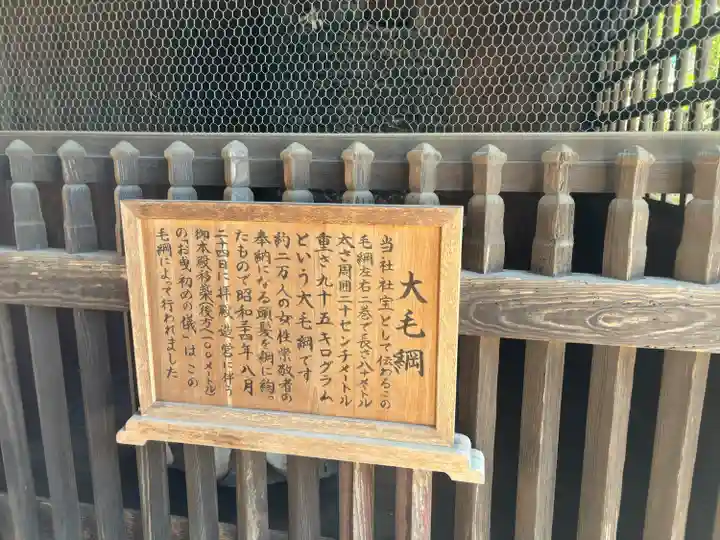 大毛綱
当社社宝として伝わるこの
毛綱左右二巻で長さ八十メートル
太さ周囲二十センチメートル
重さ九十五キログラム
という大毛綱です
約二万人の女性崇敬者の
奉納になる頭髪を綱に約っ
たもので昭和三十四年八月
二十四日に拝殿造営に伴う
御本殿移築(後方へ一〇〇メートル)
の「お曳初めの儀」はこの
毛綱によって行われました